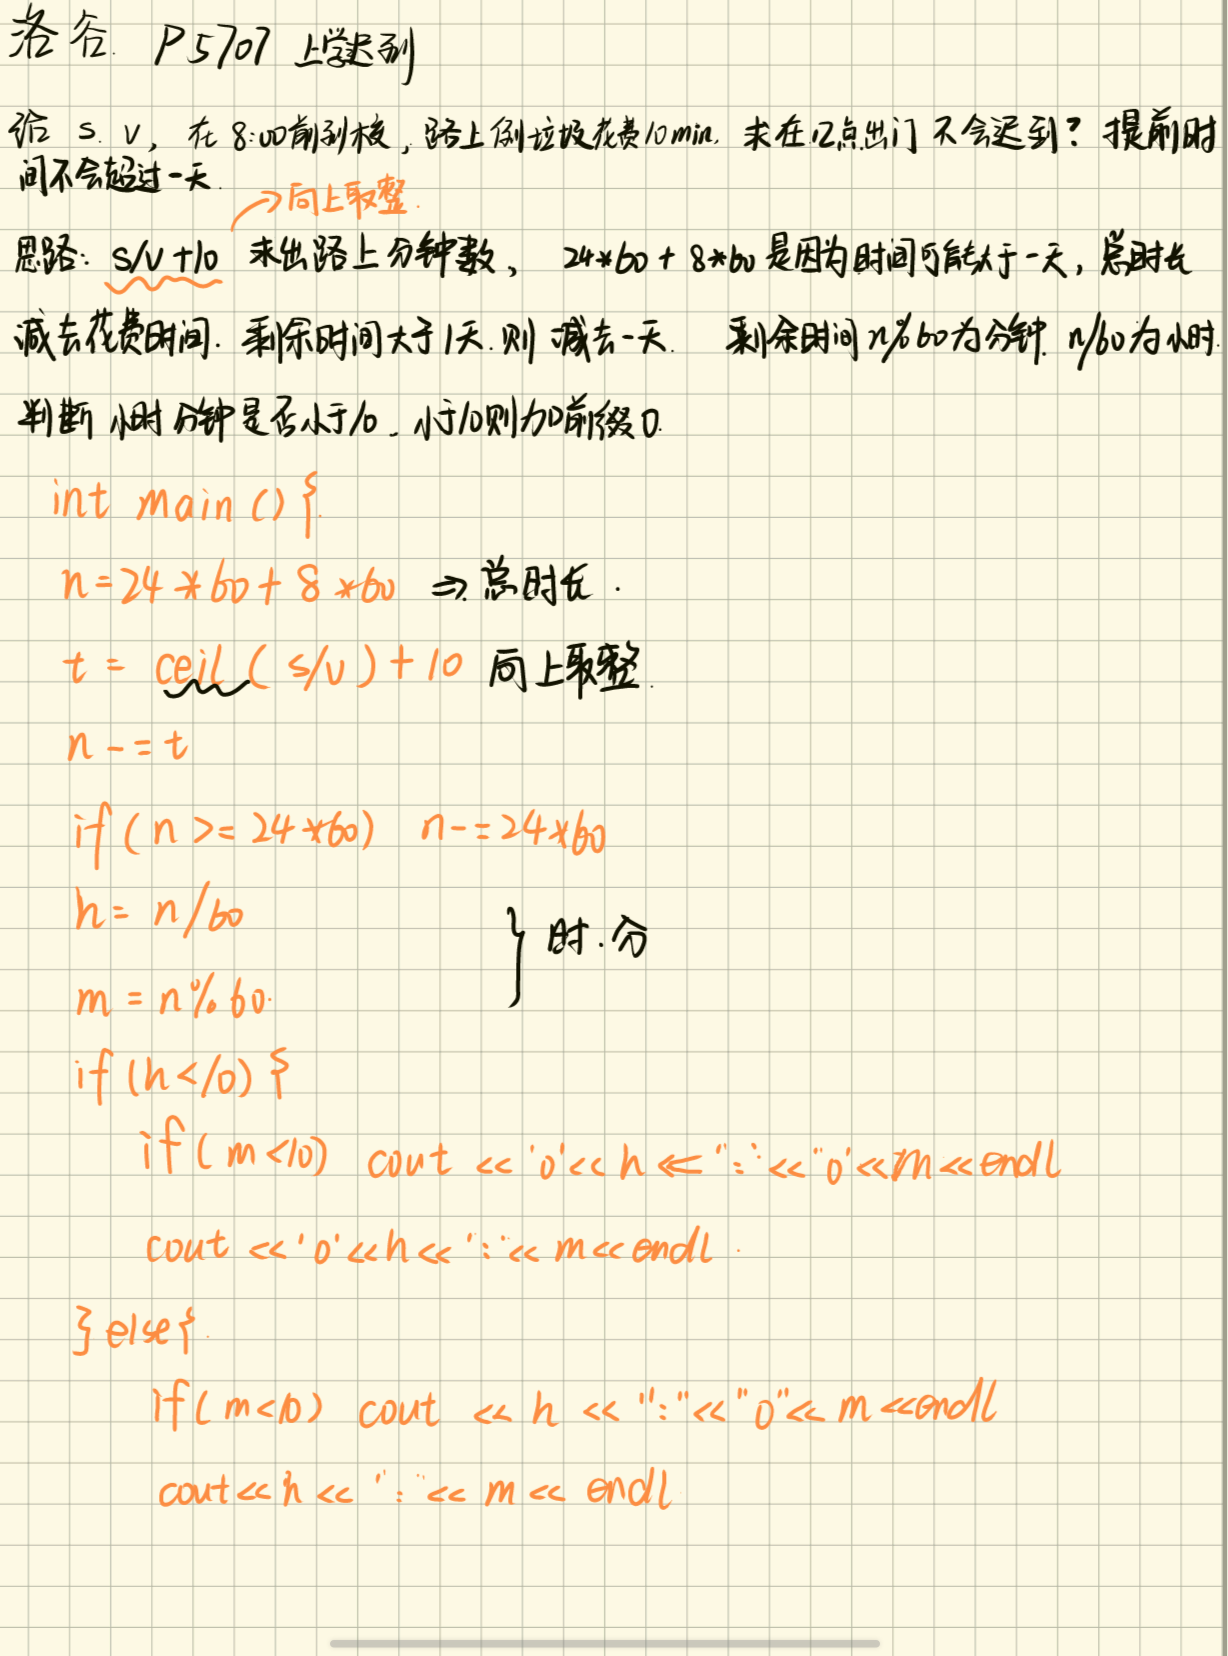 洛谷. P5707 上学迟到
给 s. v, 在 8:00前到校, 路上倒垃圾花费10min. 求在几点出门 不会迟到? 提前时
间不会超过一天.
→向上取整.
思路: s/v+10 求出路上分钟数, 24*60 + 8*60 是因为时间可能大于一天, 总时长
减去花费时间. 剩余时间大于1天.则 减去一天. 剩余时间 n%60 为分钟. n/60 为小时.
判断 小时 分钟 是否小于10. 小于10则加前缀0.
int main () {
n=24 *60+ 8 *60 ⇒ 总时长.
t = ceil ( s/v ) + 10 向上取整.
n -= t
if ( n >= 24 *60) n-=24*60
h= n/60
} 时.分
m = n%60.
if (h<10) {
if ( m<10) cout << '0'<< h << ":" << "0'<<m<<endl
cout <<'0'<<h<< ":"<< m<<endl.
} else{.
if( m<10) cout << h << ":"<<"0"<< m <<endl
cout<< h << ":"<< m << endl